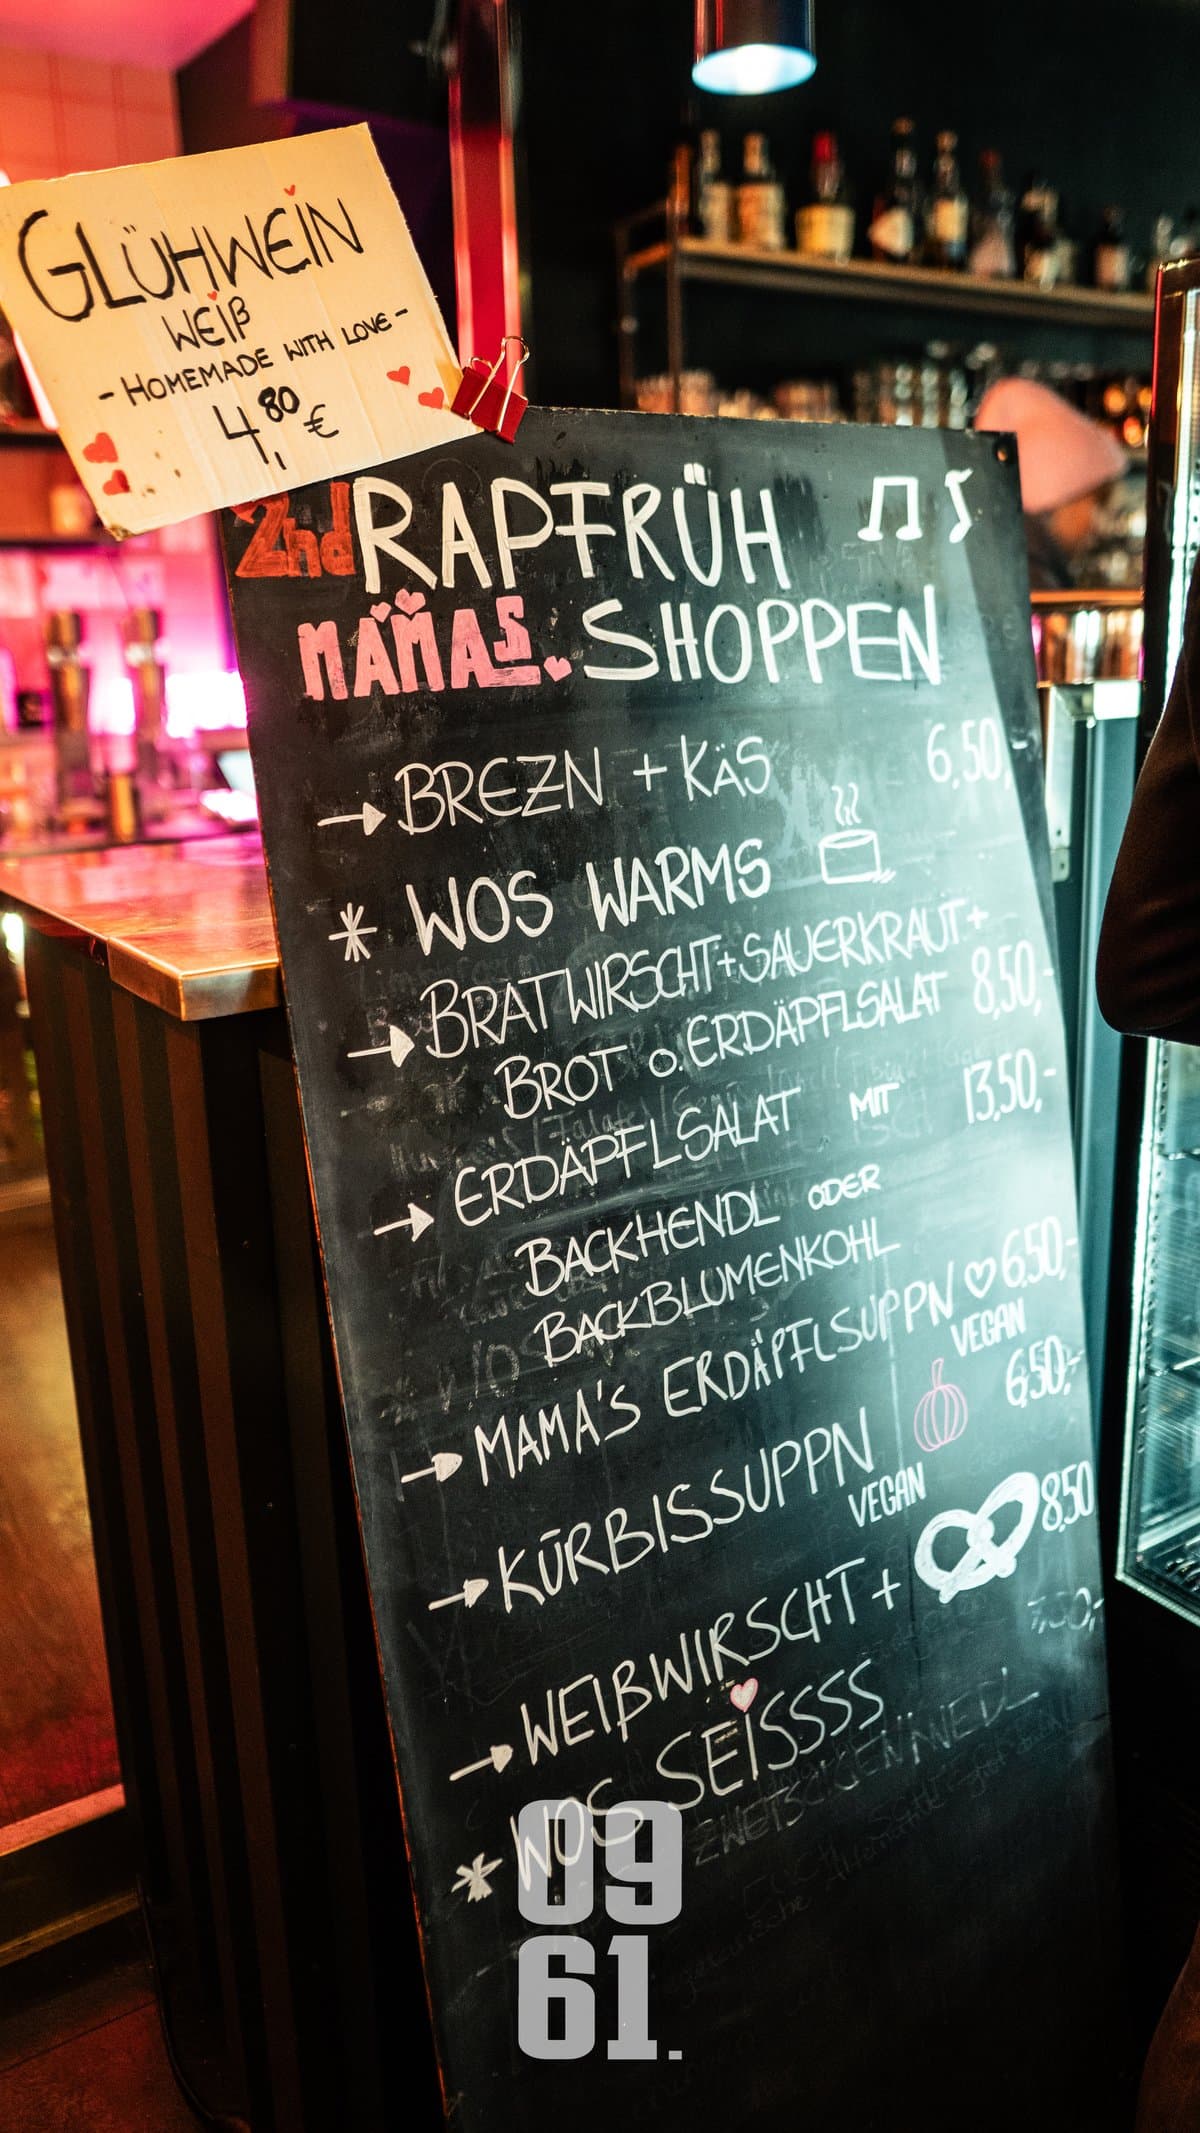 GLÜHWEIN
WEIß
- HOMEMADE WITH LOVE -
4,80 €
2nd RAPFRÜH
MAMAS SHOPPEN
→ BREZN + KÄS 6,50,-
* WOS WARMS
→ BRATWIRSCHT + SAUERKRAUT +
BROT o. ERDÄPFLSALAT 8,50,-
→ ERDÄPFLSALAT MIT 13,50,-
BACKHENDL ODER
BACKBLUMENKOHL
→ MAMA'S ERDÄPFLSUPPN ♡ 6,50,-
VEGAN
→ KÜRBISSUPPN 6,50,-
VEGAN
→ WEIßWIRSCHT + 8,50
* WOS SEISSSS
09
61.